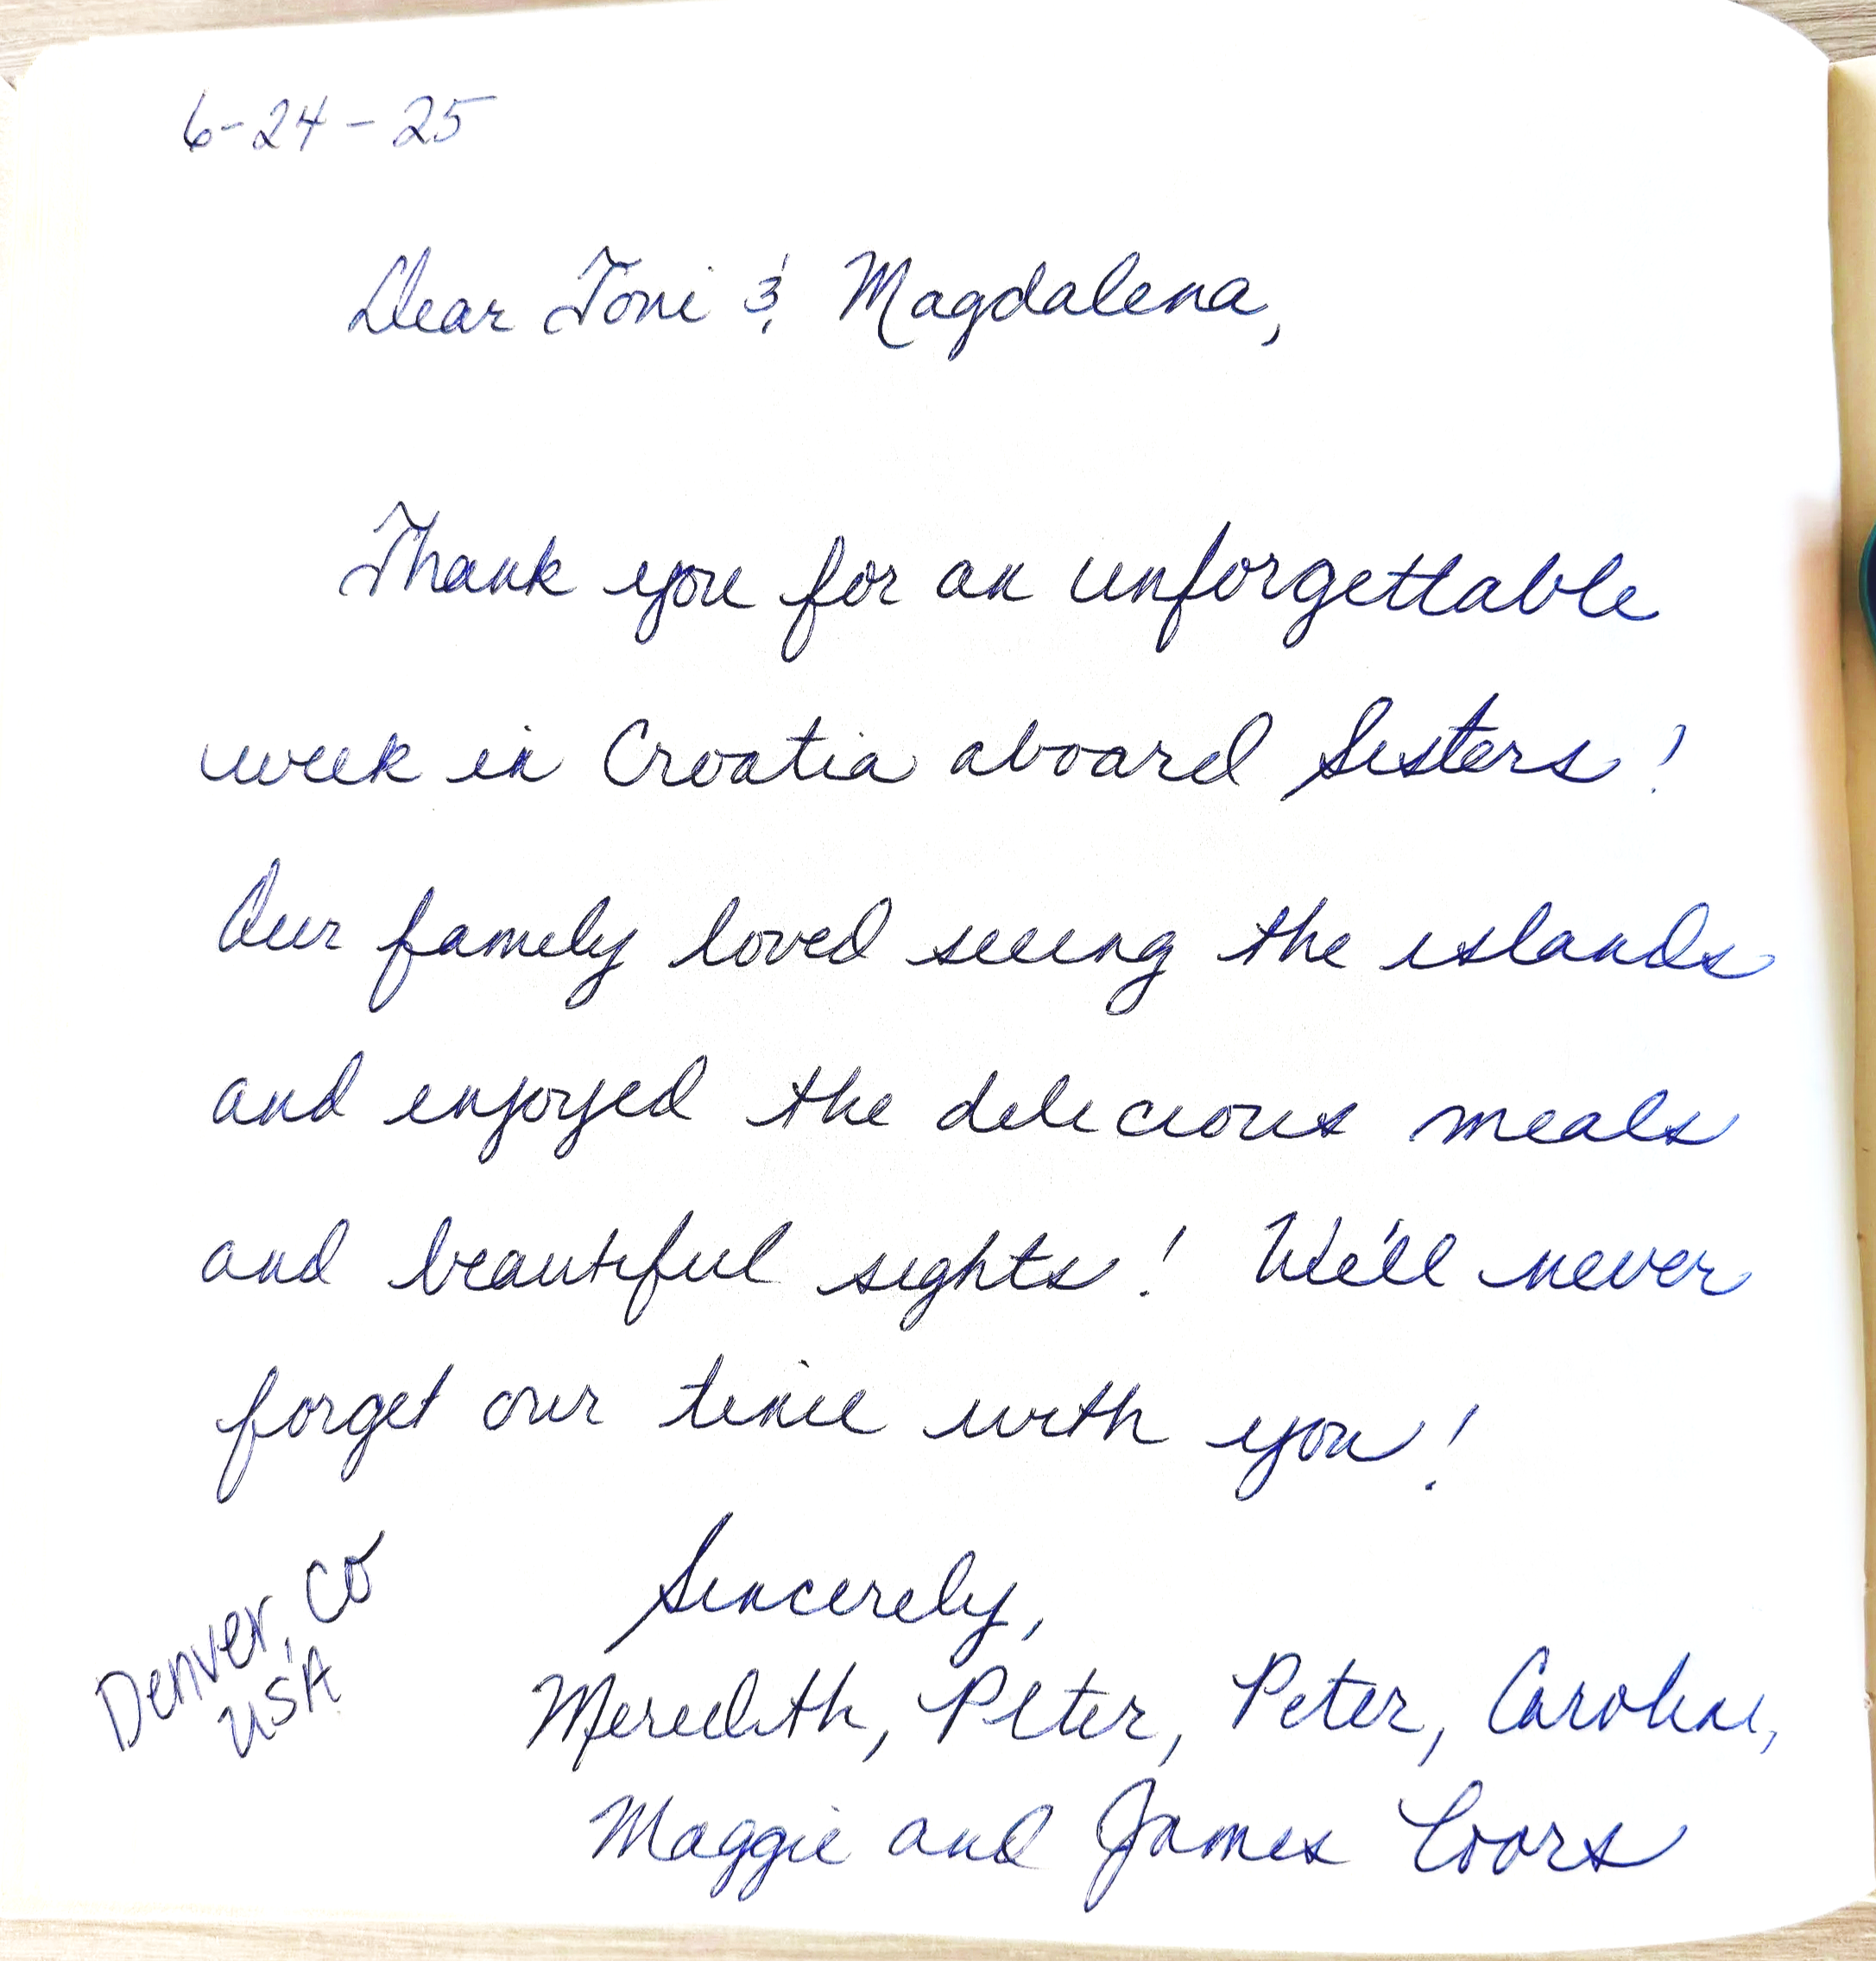 6-24-25
Dear Toni & Magdalena,
Thank you for an unforgettable
week in Croatia aboard Sisters!
Our family loved seeing the islands
and enjoyed the delicious meals
and beautiful sights! We'll never
forget our time with you!
Sincerely,
Denver, CO
USA
Meredith, Peter, Peter, Caroline,
Maggie and James Coors